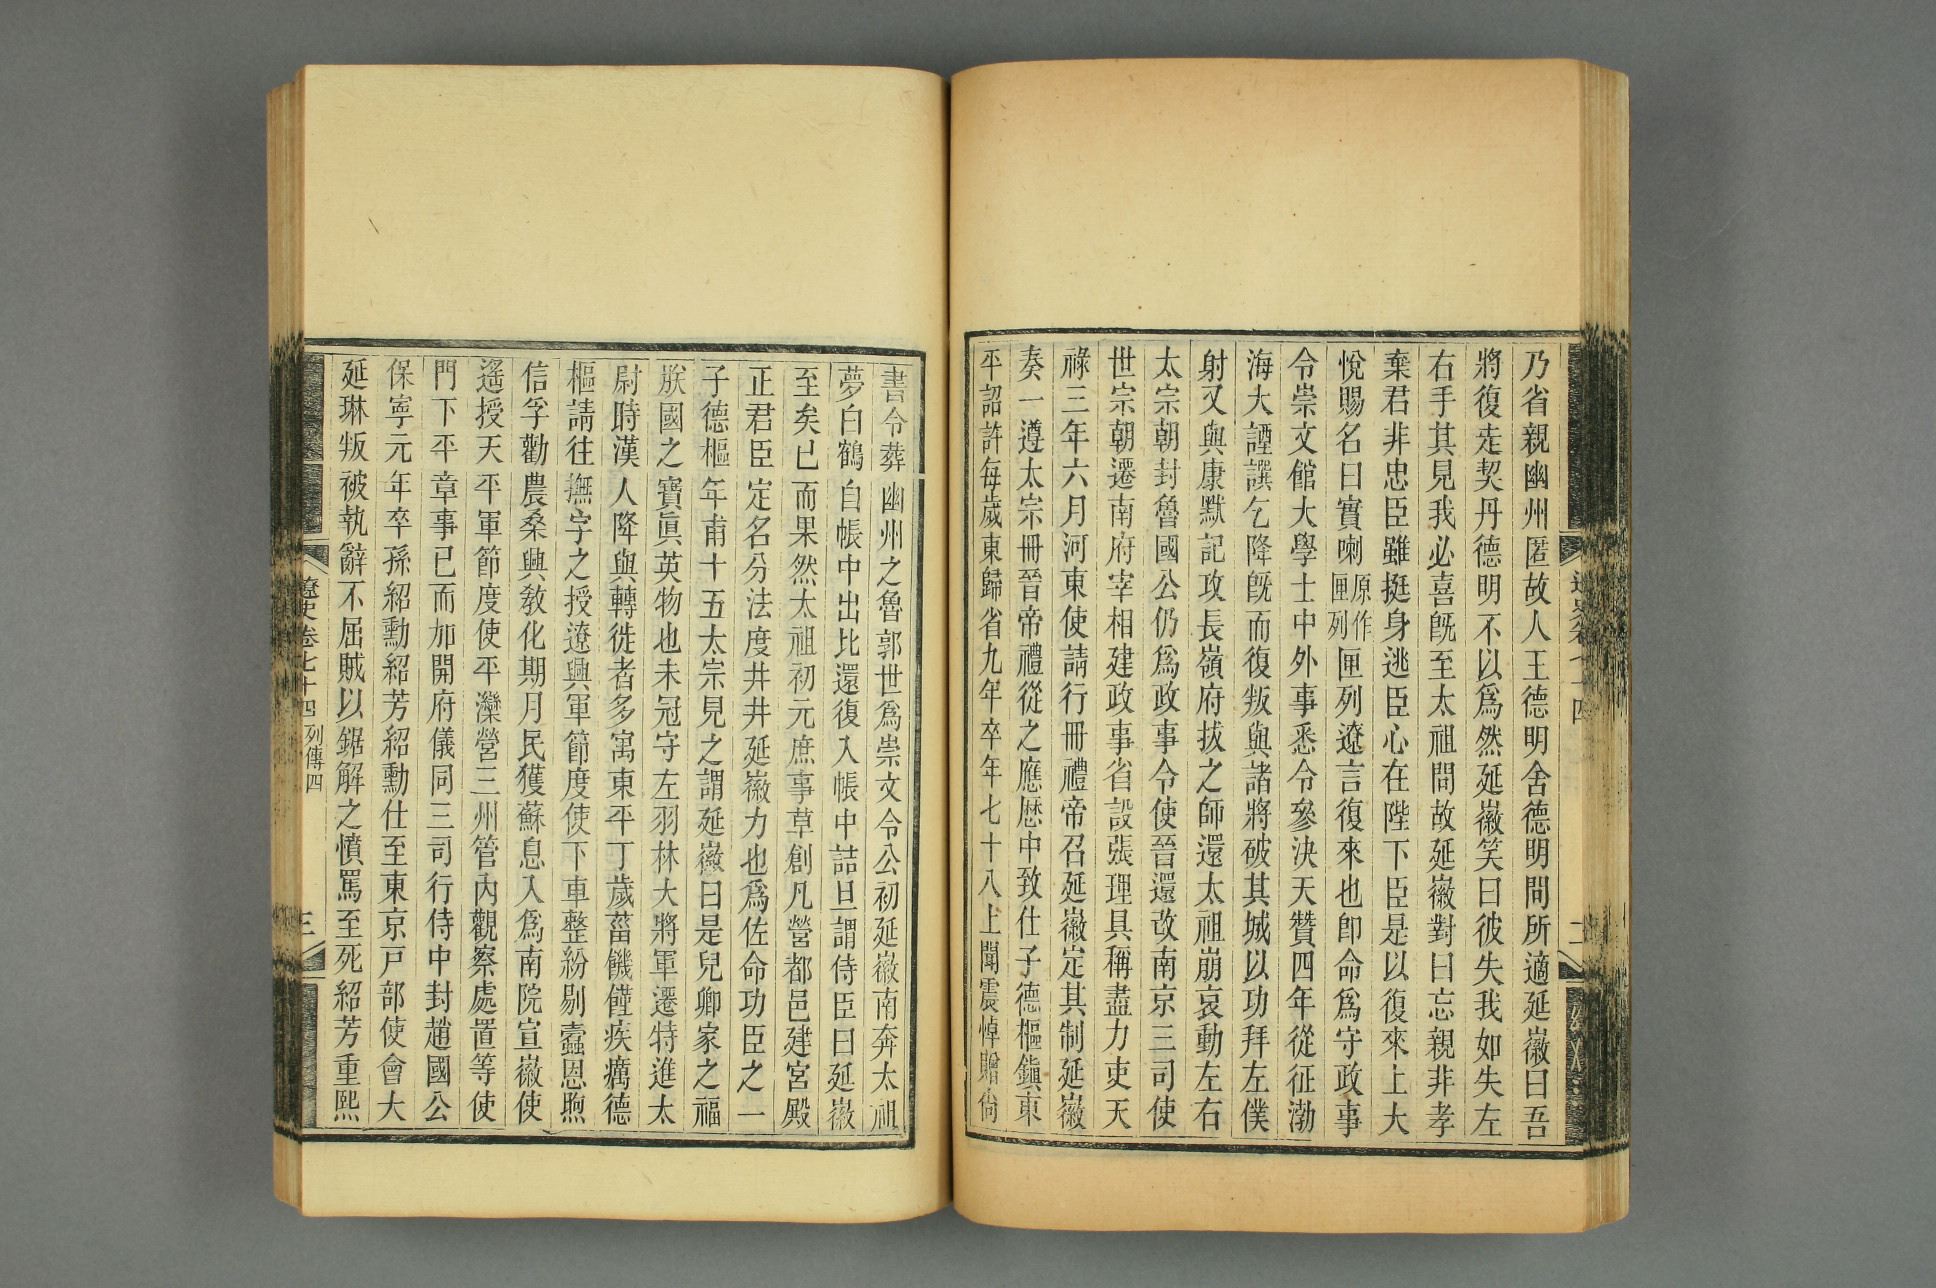 乃省親幽州匿故人王德明舍德明問所適延徽曰吾
將復走契丹德明不以爲然延徽笑曰彼失我如失左
右手其見我必喜旣至太祖問故延徽對曰忘親非孝
棄君非忠臣雖挺身逃臣心在陛下臣是以復來上大
悅賜名曰實喇原作匣列匣列遼言復來也卽命爲守政事
令崇文館大學士中外事悉令參決天贊四年從征渤
海大諲譔乞降旣而復叛與諸將破其城以功拜左僕
射又與康默記攻長嶺府拔之師還太祖崩哀動左右
太宗朝封魯國公仍爲政事令使晉還改南京三司使
世宗朝遷南府宰相建政事省設張理具稱盡力吏天
祿三年六月河東使請行冊禮帝召延徽定其制延徽
奏一遵太宗冊晉帝禮從之應歷中致仕子德樞鎭東
平詔許每歲東歸省九年卒年七十八上聞震悼贈尙
書令葬幽州之魯郭世爲崇文令公初延徽南奔太祖
夢白鶴自帳中出比還復入帳中詰旦謂侍臣曰延徽
至矣已而果然太祖初元庶事草創凡營都邑建宮殿
正君臣定名分法度井井延徽力也爲佐命功臣之一
子德樞年甫十五太宗見之謂延徽曰是兒卿家之福
朕國之寶眞英物也未冠守左羽林大將軍遷特進太
尉時漢人降與轉徙者多寓東平丁歲菑饑饉疾癘德
樞請往撫字之授遼興軍節度使下車整紛剔蠹恩煦
信孚勸農桑興敎化期月民獲蘇息入爲南院宣徽使
遙授天平軍節度使平灤營三州管內觀察處置等使
門下平章事已而加開府儀同三司行侍中封趙國公
保寧元年卒孫紹勳紹芳紹勳仕至東京戸部使會大
延琳叛被執辭不屈賊以鋸解之憤罵至死紹芳重熙
遼史卷七十四 列傳四
三